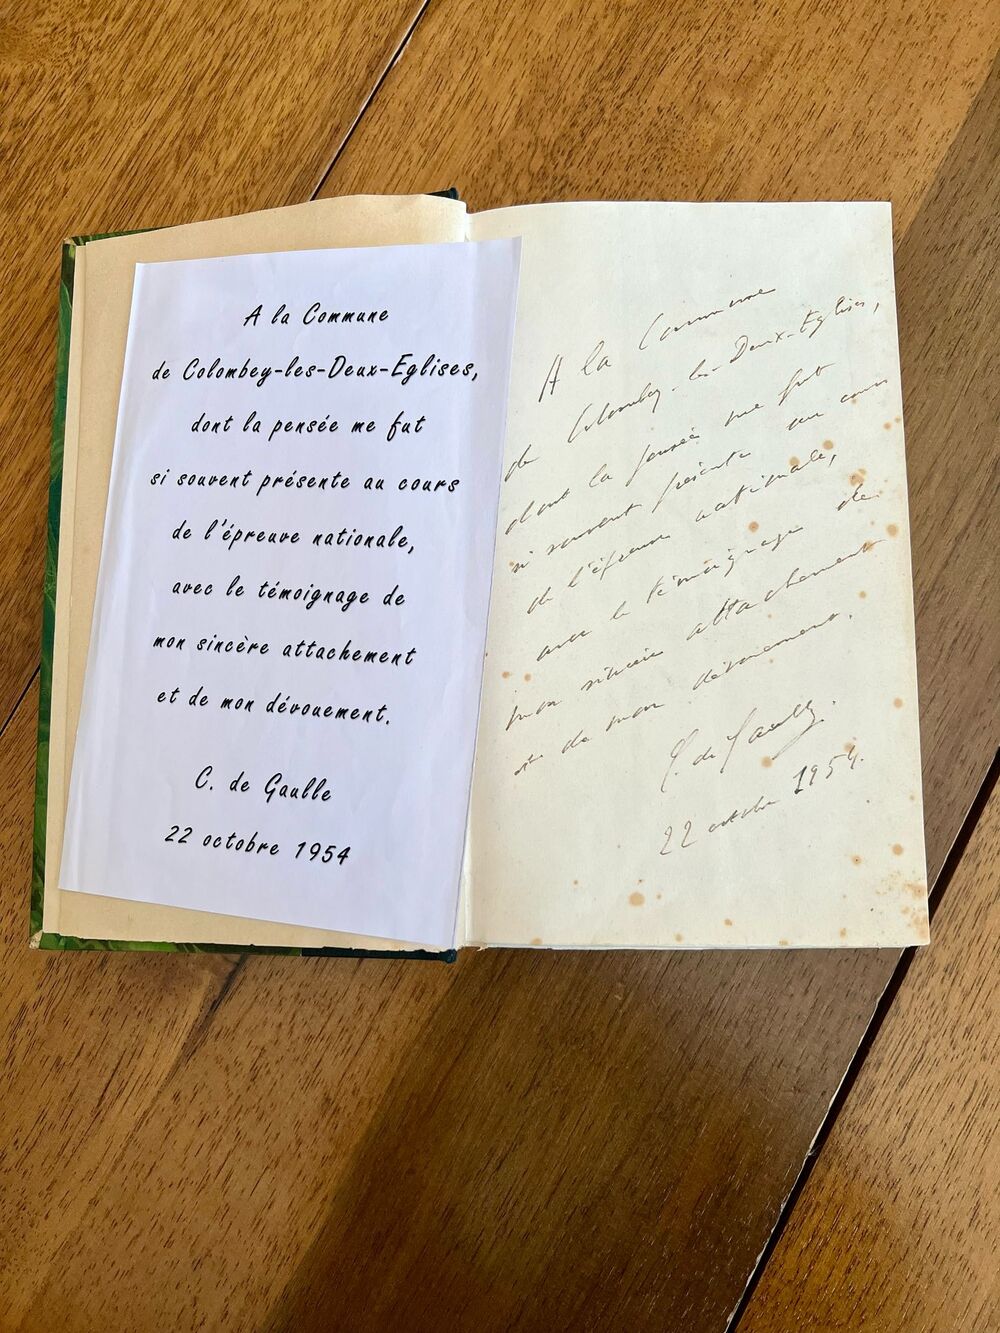 A la Commune
de Colombey-les-Deux-Eglises,
dont la pensée me fut
si souvent présente au cours
de l'épreuve nationale,
avec le témoignage de
mon sincère attachement
et de mon dévouement.
C. de Gaulle
22 octobre 1954
A la Commune
de Colombey-les-Deux-Eglises,
dont la pensée me fut
si souvent présente au cours
de l'épreuve nationale,
avec le témoignage de
mon sincère attachement
et de mon dévouement.
C. de Gaulle.
22 octobre 1954.